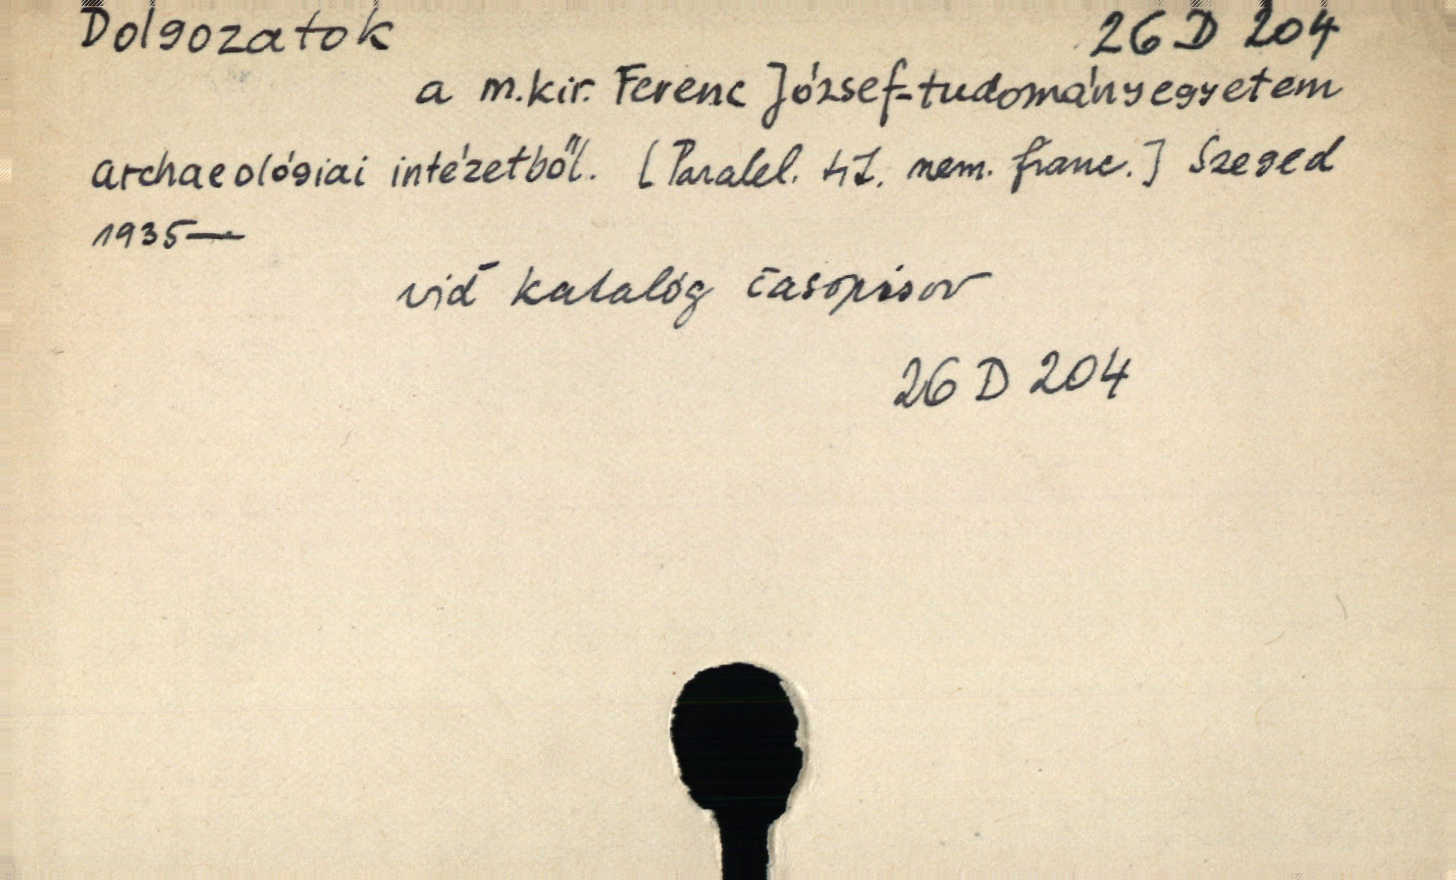 Dolgozatok 26 D 204
a m. kir. Ferenc József-tudományegyetem
archaeológiai intézetből. [Paralel. tit. nem. franc.] Szeged
1935—
viď katalóg časopisov
26 D 204